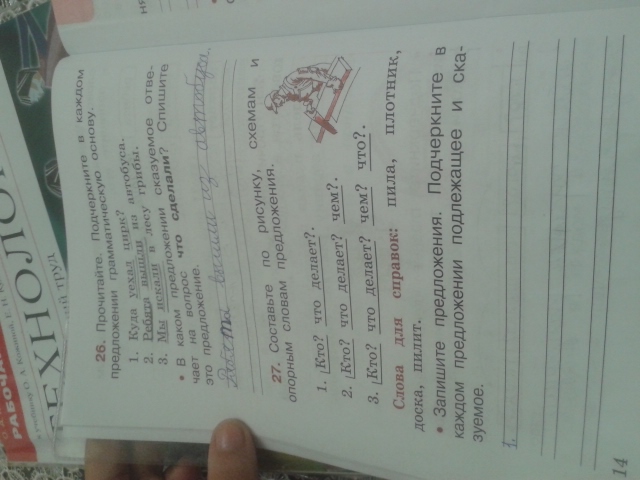 26. Прочитайте. Подчеркните в каждом
предложении грамматическую основу.
1. Куда уехал цирк?
2. Ребята вышли из автобуса.
3. Мы искали в лесу грибы.
• В каком предложении сказуемое отве-
чает на вопрос что сделали? Спишите
это предложение.
Ребята вышли из автобуса.
27. Составьте по рисунку, схемам и
опорным словам предложения.
1. Кто? что делает?.
2. Кто? что делает? чем?.
3. Кто? что делает? чем? что?.
Слова для справок: пила, плотник,
доска, пилит.
• Запишите предложения. Подчеркните в
каждом предложении подлежащее и ска-
зуемое.
1.
14
РАБОЧАЯ
ТЕХНОЛО
труд